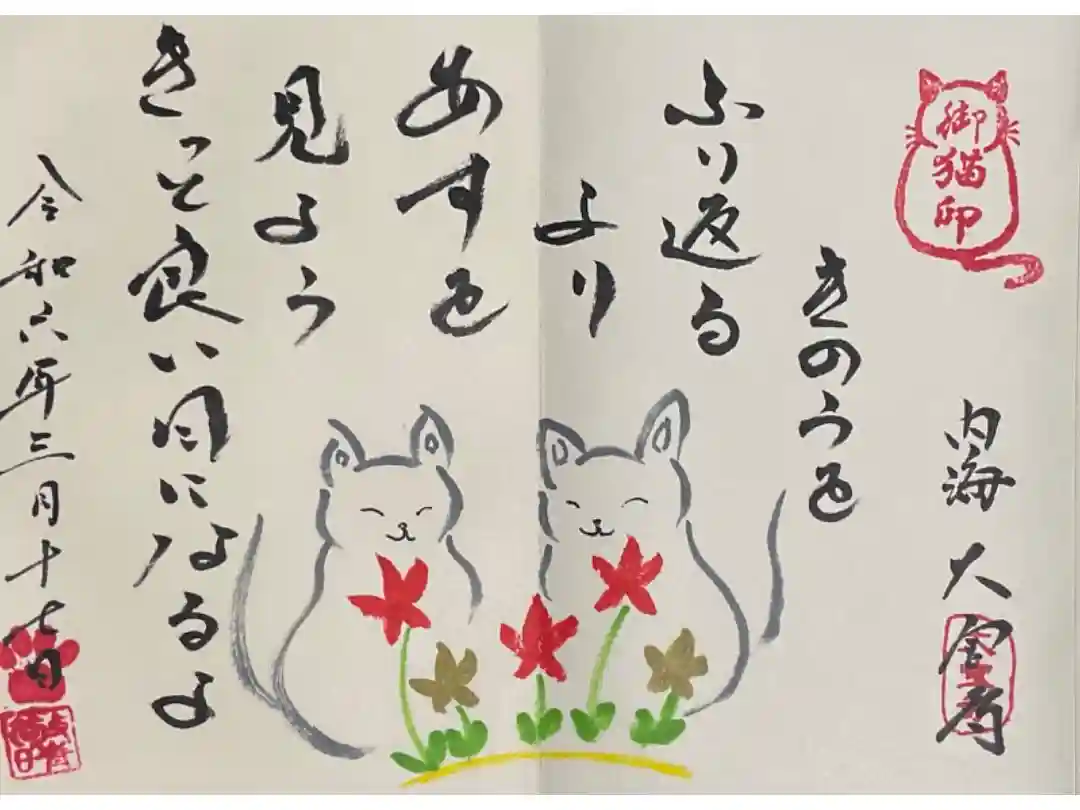 御猫印
内海 大宮寿
きのうを
ふり返る
より
あすを
見よう
きっと良い日になるよ
令和六年三月十七日